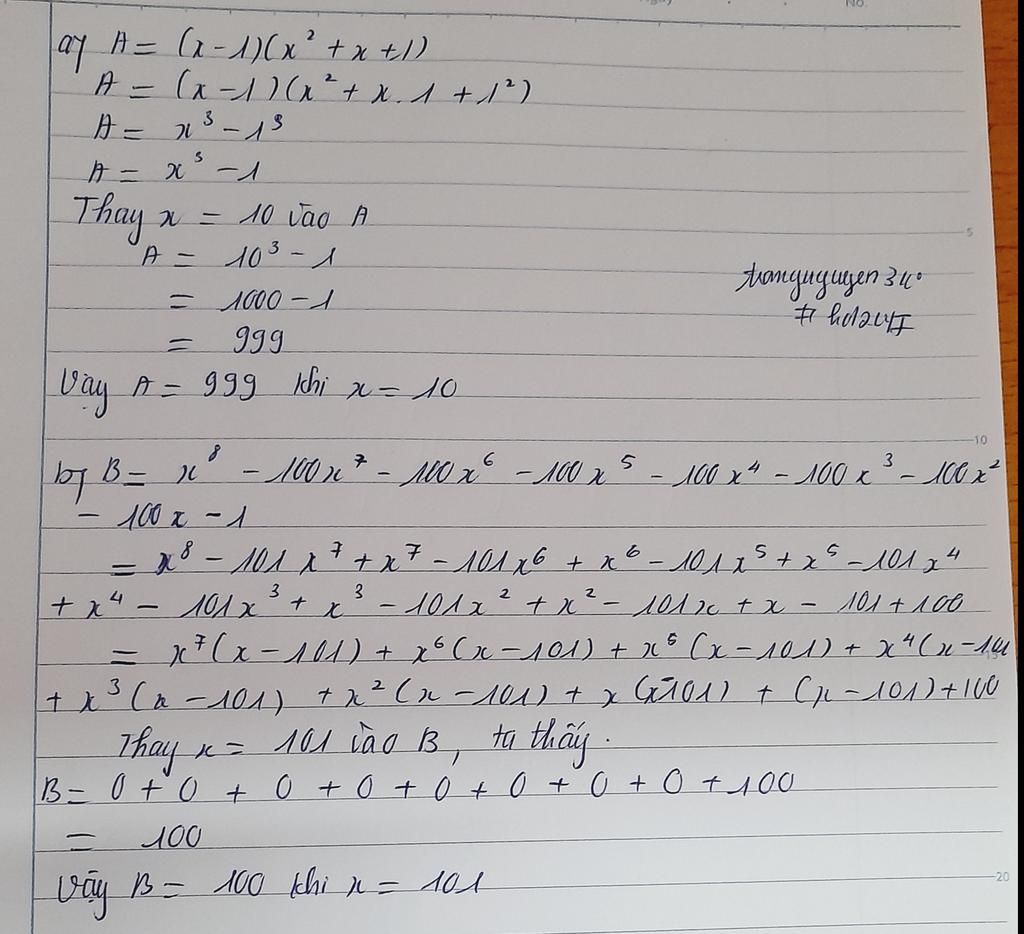 a, A = (x-1)(x² + x +1)
A = (x-1)(x² + x.1 + 1²)
A = x³ - 1³
A = x³ - 1
Thay x = 10 vào A
A = 10³ - 1
= 1000 - 1
= 999
Vậy A = 999 khi x = 10
b, B = x⁸ - 100x⁷ - 100x⁶ - 100x⁵ - 100x⁴ - 100x³ - 100x²
- 100x - 1
= x⁸ - 101x⁷ + x⁷ - 101x⁶ + x⁶ - 101x⁵ + x⁵ - 101x⁴
+ x⁴ - 101x³ + x³ - 101x² + x² - 101x + x - 101 + 100
= x⁷(x-101) + x⁶(x-101) + x⁵(x-101) + x⁴(x-101
+ x³(x-101) + x²(x-101) + x(x-101) + (x-101) + 100
Thay x = 101 vào B, ta thấy.
B = 0 + 0 + 0 + 0 + 0 + 0 + 0 + 0 + 100
= 100
Vậy B = 100 khi x = 101
No.
5
10
20